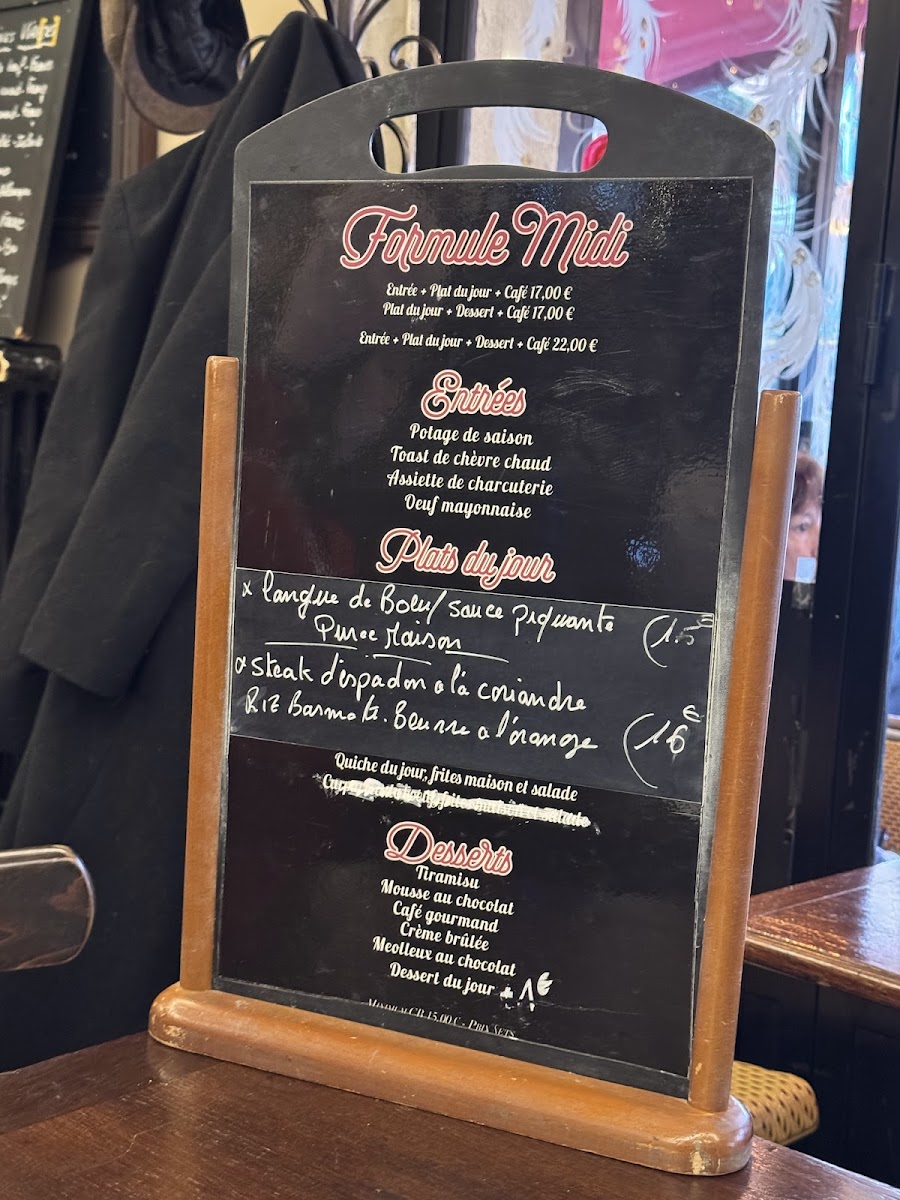 Formule Midi
Entrée + Plat du jour + Café 17,00 €
Plat du jour + Dessert + Café 17,00 €
Entrée + Plat du jour + Dessert + Café 22,00 €
Entrées
Potage de saison
Toast de chèvre chaud
Assiette de charcuterie
Oeuf mayonnaise
Plats du jour
x langue de Boeuf sauce piquante
Puree Maison (15€
x steak d'espadon a la coriandre
Riz Basmati. Beurre a l'orange (16€
Quiche du jour, frites maison et salade
frites maison et salade
Desserts
Tiramisu
Mousse au chocolat
Café gourmand
Crème brûlée
Meolleux au chocolat
Dessert du jour + 1€
Minimum CB 15,00 € - Prix Nets